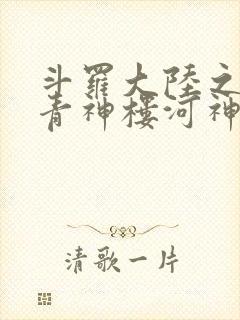 斗羅大陸之
青神樓河神
清歌一片